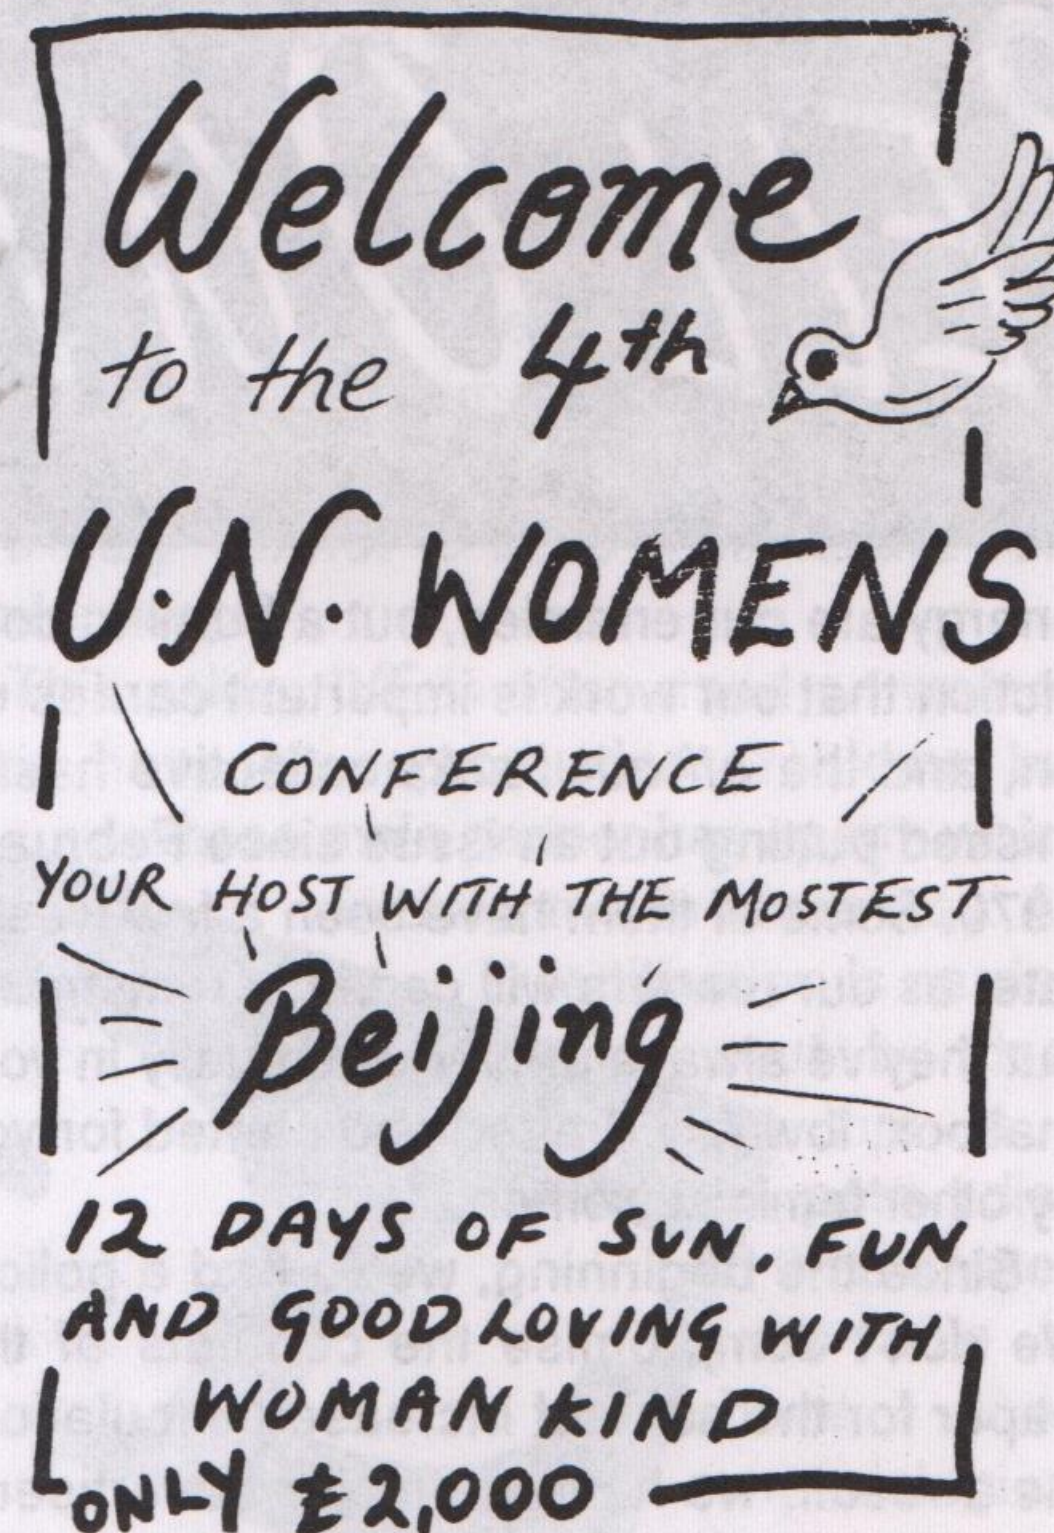 Welcome
to the 4th
U.N. WOMENS
CONFERENCE
YOUR HOST WITH THE MOSTEST
Beijing
12 DAYS OF SUN, FUN
AND GOOD LOVING WITH
WOMAN KIND
ONLY £2,000